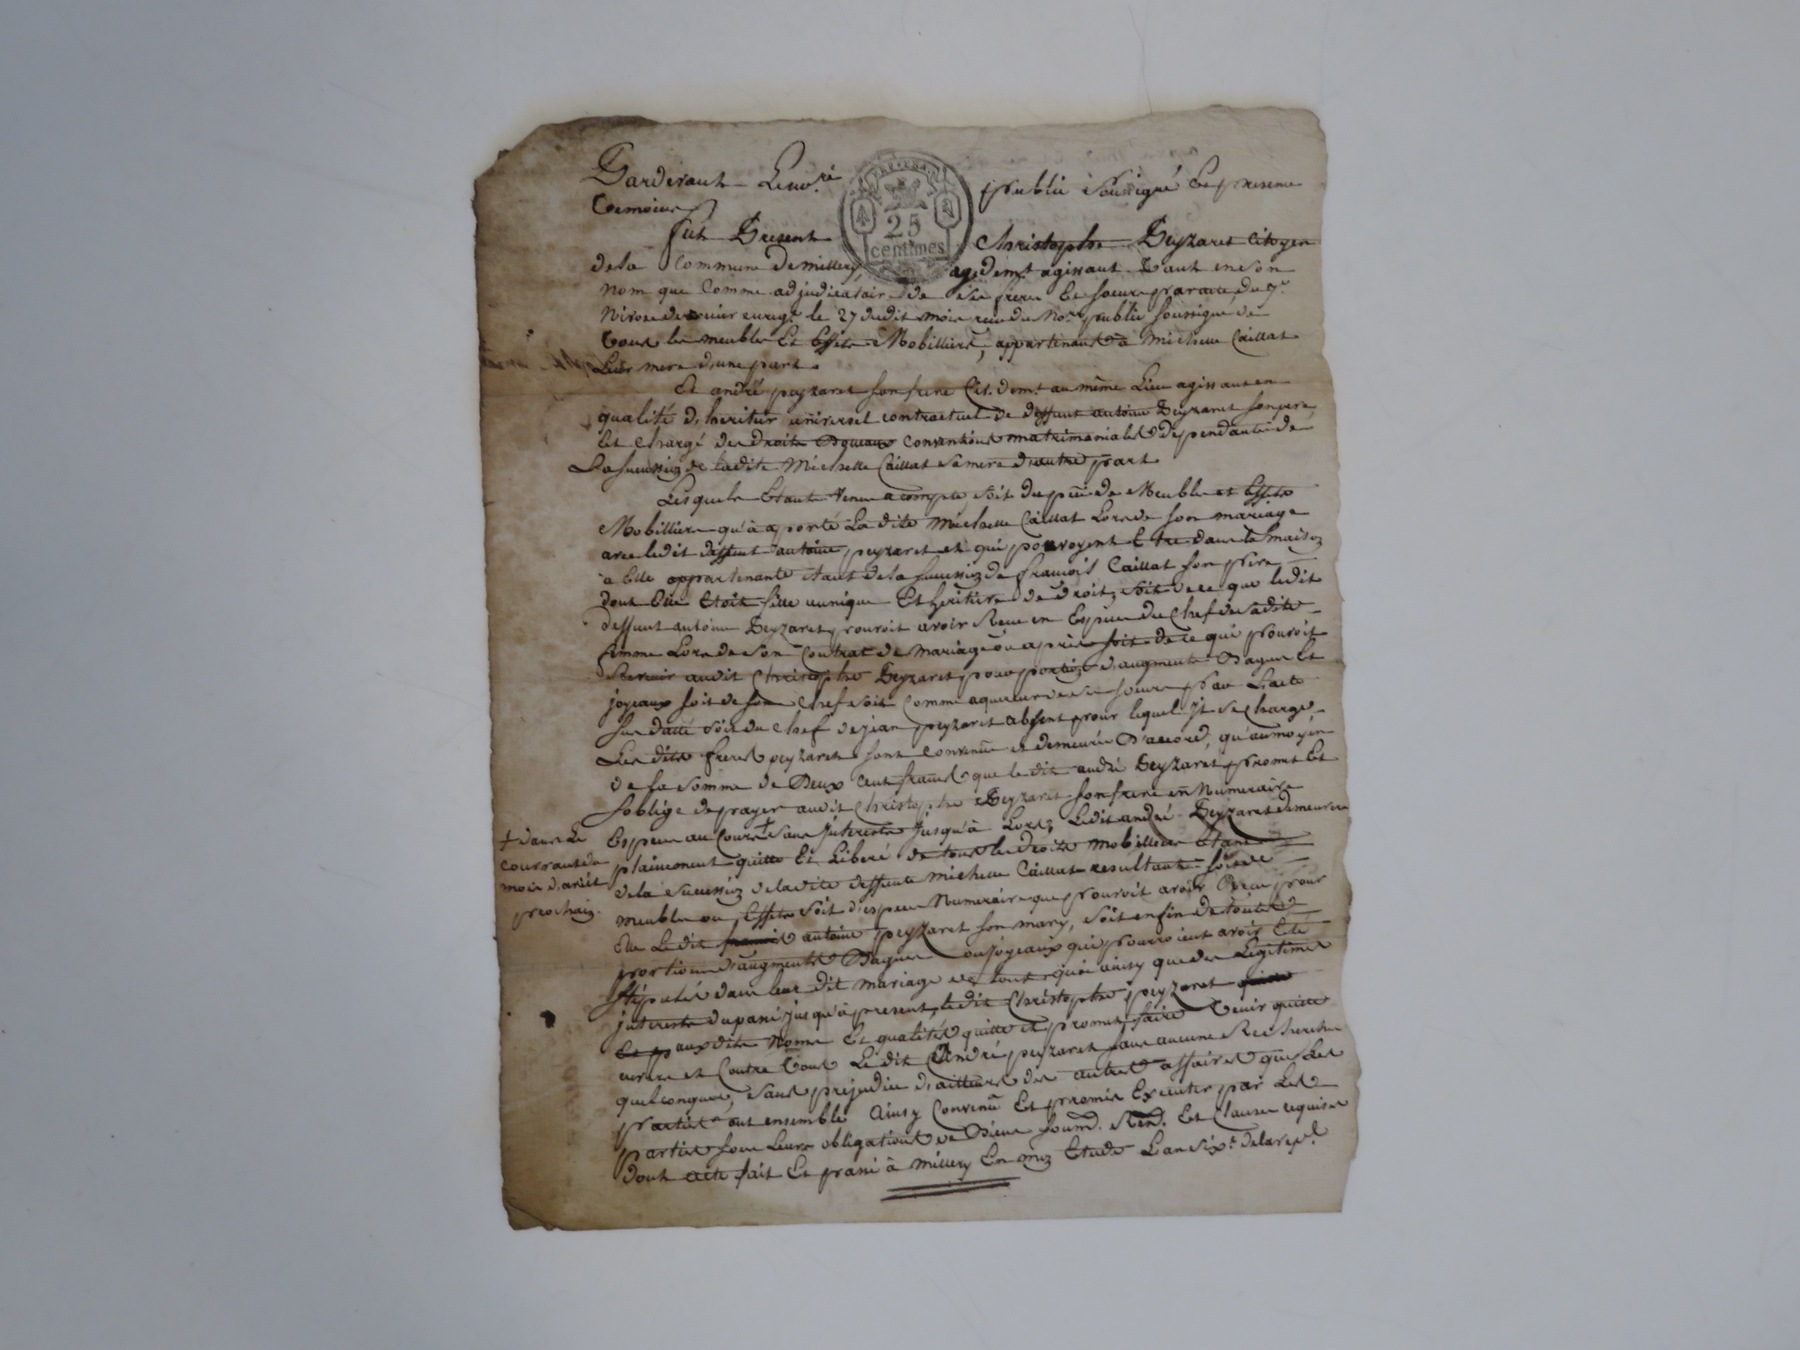 Pardevant Le no.re public soussigné et presence
temoins
fut Present Christophe Peyzaret citoyen
25
centimes
de la Commune de millery y demt agissant tant en son
nom que Comme adjudicataire de ses frere et soeurs par acte du 7e
Nivose dernier euregé le 27 dudit mois reçu du Nore public soussigné de
tous les meubles et effets Mobilliers, appartenants à Michelle Caillat
Leur mere d'une part.
Et andré peyzaret son frere Cit. demt au même Lieu agissant en
qualité d'heritier universel contractuel de deffunt antoine Peyzaret son pere,
et chargé des droits conventions matrimoniales dependantes de
La succession de ladite Michelle Caillat sa mere d'autre part.
Lesquels Etant Venus a compte soit du prix des Meubles et effets
Mobilliers qu'à aporté La dite Michelle Caillat Lors de son mariage
avec ledit deffunt antoine peyzaret et qui pouvoyent Etre dans la maison
à Elle appartenante Etant de la succession de francois Caillat son Père
dont Elle Etoit fille unnique Et heritiere de droit, soit de ce que ledit
deffunt antoine Peyzaret pouroit avoir Reçu en Espece du Chef de sadite
femme Lors de son Contrat de mariage ou après soit de ce qui pouroit
Revenir audit Christophe Peyzaret pour portion d'augment Bagues Et
joyeaux soit de son Chef soit Comme aquereur de ses soeurs par L'acte
sus datté soit du Chef de jean peyzaret absent pour lequel Il se Charge,
Les dits freres peyzaret sont Convenus et demeurés D'accord, qu'au moyen
de la somme de Deux Cent francs que le dit andré Peyzaret promet Et
s'oblige de payer audit Christophe Peyzaret son frere en Numeraire
Espece au Cours + sans Interets jusqu'à Lors, Ledit andré Peyzaret demeurera
+ dans le
courrant du
mois d'aout
prochain.
plainement quitte Et Liberé de tous les droits mobilliers Etant
de la Succession de ladite deffunte Michelle Caillat resultants soit de
meubles ou Effets soit d'espece Numeraire que pouroit avoir Reçu pour
Elle Ledit francois antoine peyzaret son mary, soit enfin de toutes
portions d'augments Bagues ou joyeaux qui pourroient avoir Eté
stipulés dans leur dit mariage de tout quoi ainsy que des Legitimes
interets du passé jusqu'à present, ledit Christophe peyzaret quitte
Et p auxdits Noms Et qualités quitte et promet faire tenir quitte
envers et Contre tous Le dit André peyzaret sans aucune Recherche
quelconque, sans prejudice d'ailleurs des autres affaires que Les
parties ont ensemble Ainsy Convenu Et promis Executer par Les
parties sous Leurs obligations de Biens soumd. Rend. Et Clauses requises
dont acte fait Et passé à Millery En mon Etude L'an six.e de la rep.e